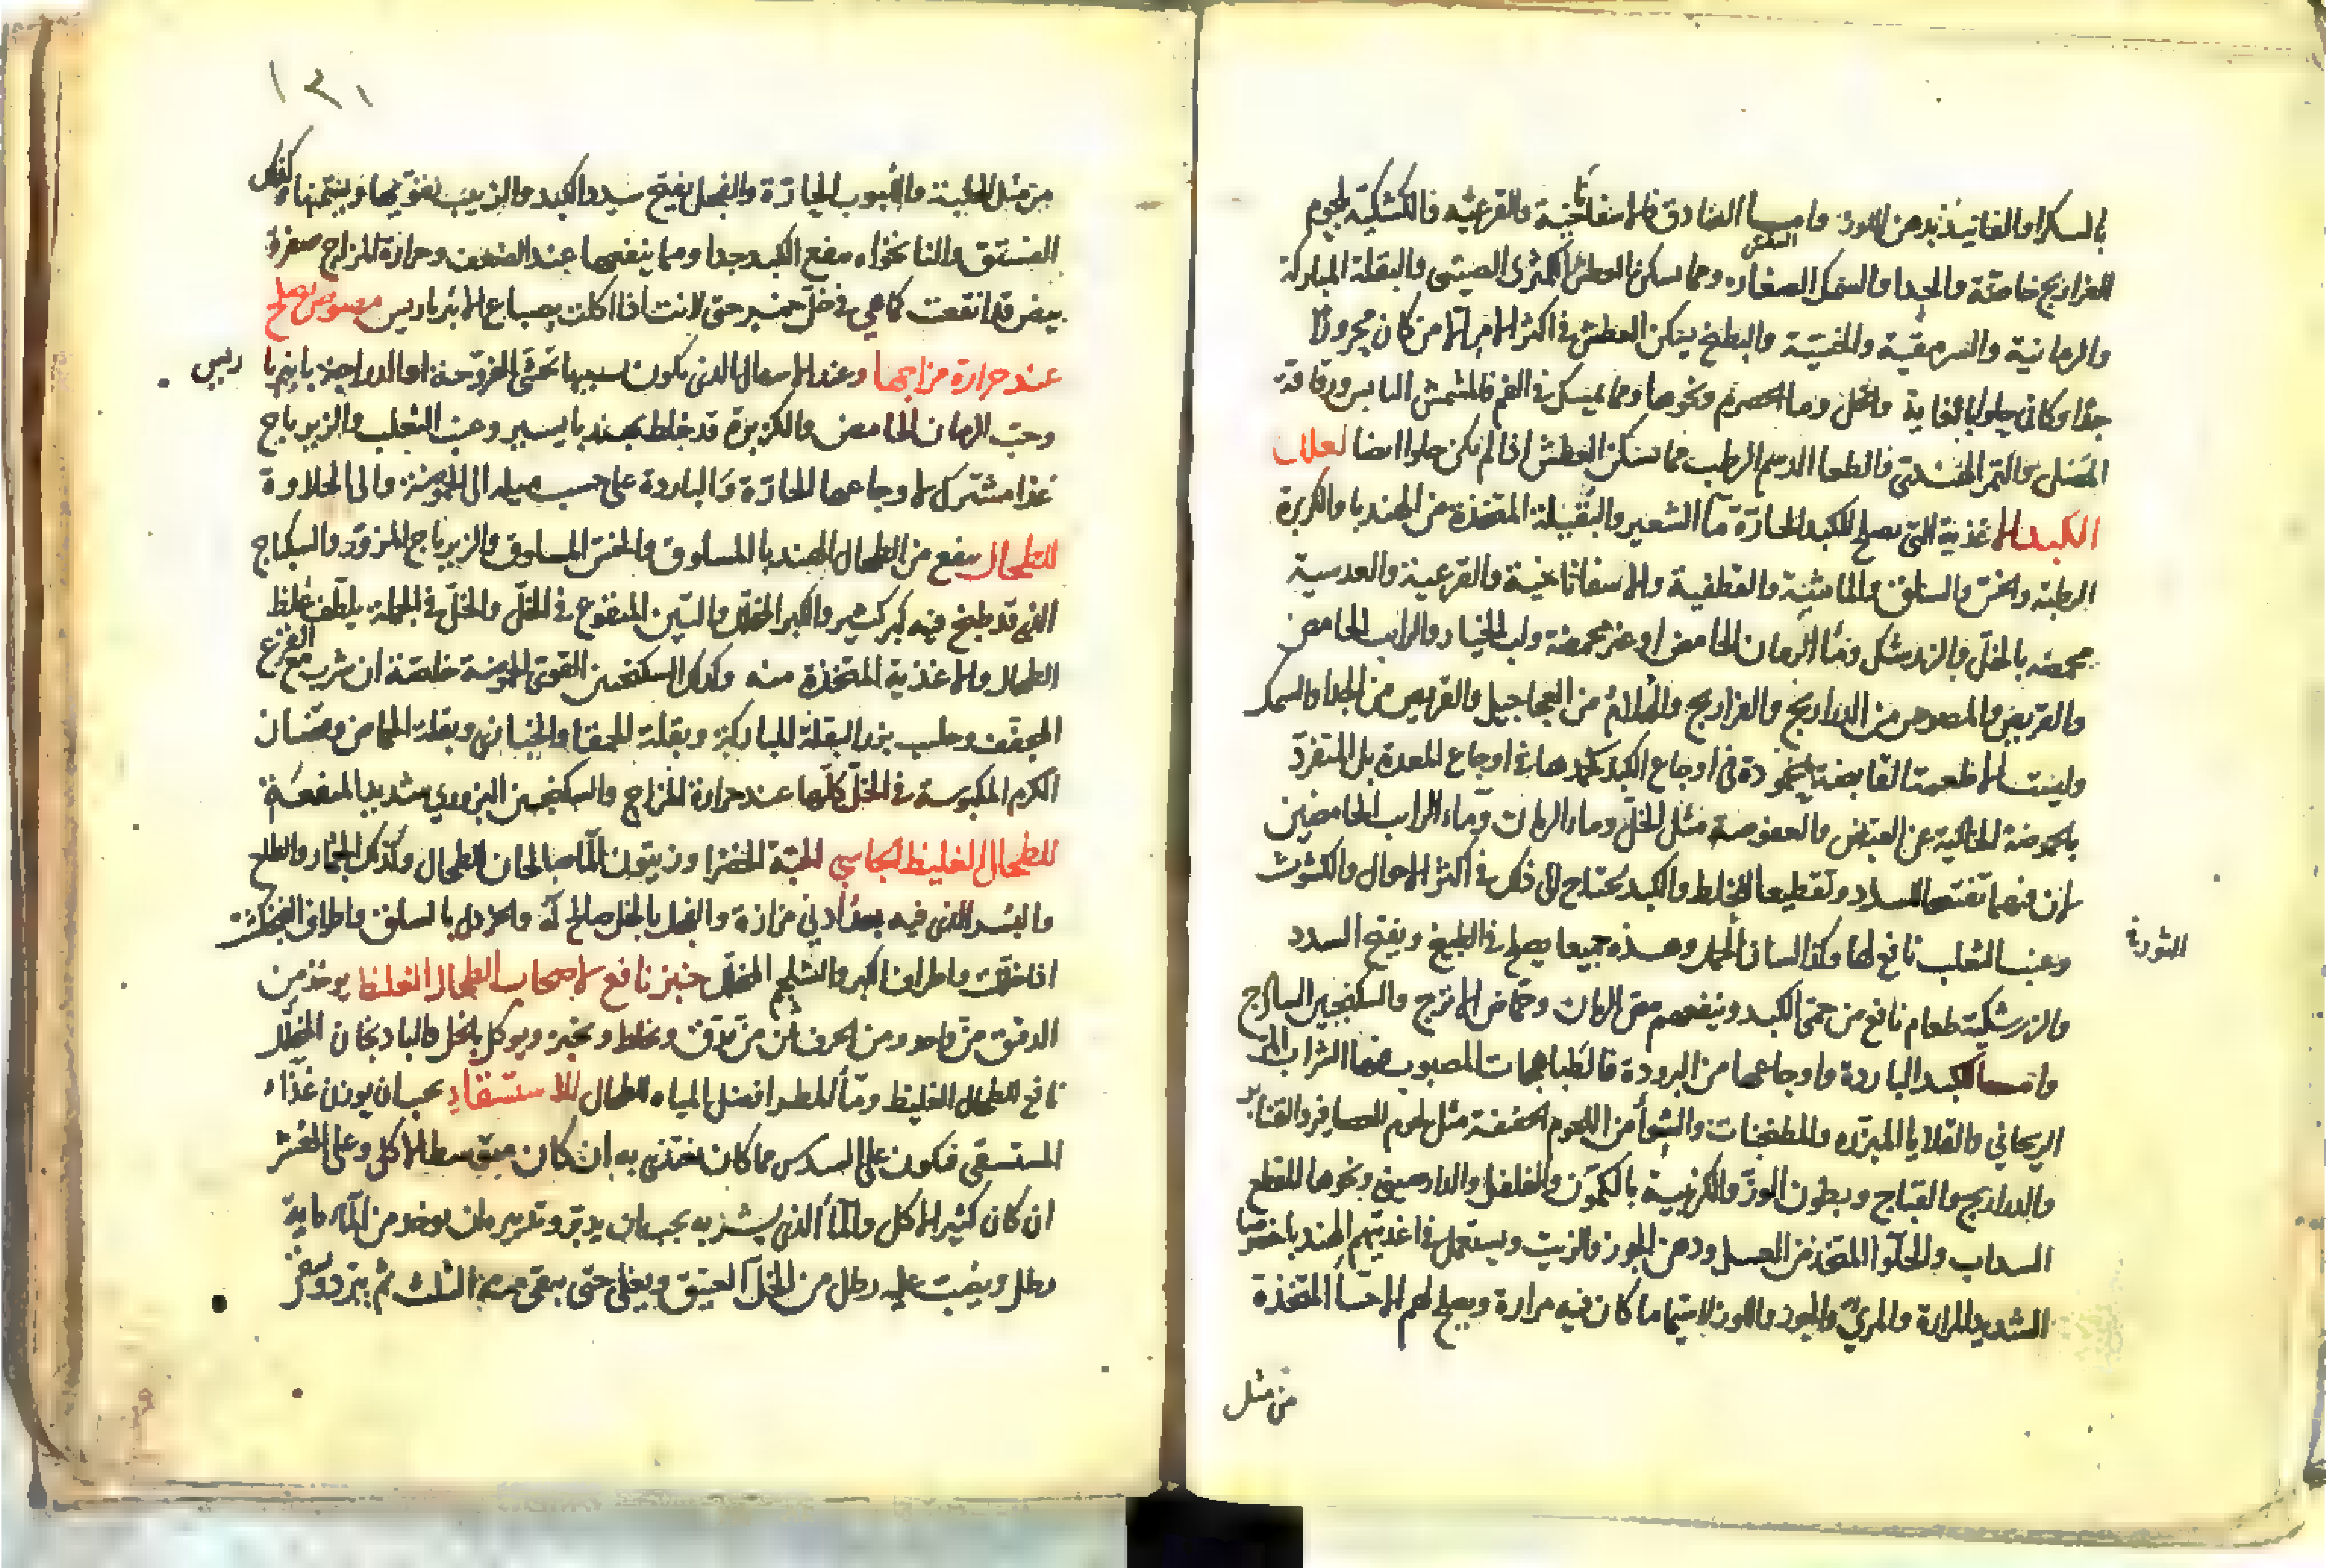 بالسكر او الفانيذ بدهن اللوز واما الصادق فالاسفاناخية والقرعيه والكشكية بلحوم
الفراريج خاصة والجدا والسمك الصغار ومما يسكن العطش الكمثرى الصينى والبقلة المباركة
العطش
والرمانية والسرمقية والخسية والبطيخ يسكن العطش فى اكثر الامر الا من كان محرورا
جدا وكان حلوا بالغاية والخل وما الحصرم ونحوها ومما يمسك فى الفم فالمشمش اليابس ورقاقة
والتمر الهندى والطعام الدسم الرطب مما يسكن العطش اذا لم يكن حلوا ايضا لعلاب
الكبد الاغذية التى تصلح للكبد الحارة ماء الشعير والبقيلة المتخذة من الهندبا والكزبرة
الرطبة والخس والسلق والماشية والقطفية والاسفاناخية والقرعية والعدسية
محمصه بالخل وبالزرشك وماء الرمان الحامض او غير محمضة ولب الخيار والرايب الحامض
والقريص والمصوص من الدراريج والفراريج والهلام من العجاجيل والقريص من الجدا والسمك
وليست الاطعمة القابضة بمحمودة فى اوجاع الكبد كحمدها فى اوجاع المعدة بل المتفرد
بالحموضة الخالية عن القبض والعفوصة مثل الخل وماء الرمان وماء الرايب الحامضين
لان فيهما تفتيحا للسدد وتقطيعا للخلط والكبد يحتاج الى ذلك فى اكثر الاحوال والكشوث
وعنب الثعلب نافع لها وكذا لسان الحمل وهذه جميعا يصلح فى الطبيخ ويفتح السدد
والزرشكية طعام نافع من حمى الكبد وينفعهم مص الرمان وحماض الاترج والسكنجبين الساذج
واما الكبد الباردة واوجاعها من البرودة فالطباهجات المصبوب فيها الشراب
الريحاني والقلايا المبزره والمطجنات والشوا من اللحوم الخفيفة مثل لحوم العصافير والقنابر
والدراريج والقباج وبطون الوز والكرنبية بالكمون والفلفل والدارصينى ونحوها للقطع
السداب والحلوا المتخذ من العسل ودهن الجوز والزيت ويستعمل فى اغذيتهم الهندبا خصوصا
الشديد المرارة والمرى والجوز واللوز لا سيما ما كان فيه مرارة ويصلح لهم الاحساء المتخذة
من مثل
١٢١
من مثل الحلبة والحبوب الحارة والفجل يفتح سدد الكبد والزبيب يقويها وينقيها وكذلك
الفستق والنانخواه ينفع الكبد جدا ومما ينفعها عند الضعف وحرارة المزاج صفرة
بيض قد انقعت كما هى فى خل خمر حتى لانت اذا اكلت بصباغ الانبرباريس مصوص يصلح
عند حرارة مزاجها وعند الاسهال الذى يكون سببها تحشى الفروجة او الدراجة بانبربا ريس
وحب الرمان الحامض والكزبرة قد خلط بهندبا يسير وعنب الثعلب والزيرباج
غذا مشترك لاوجاعها الحارة والباردة على حسب ميله الى الحموضة والى الحلاوة
للطحال ينفع من الطحال الهندبا المسلوق والخس المسلوق والزيرباج المزور والسكباج
الذى قد طبخ فيه كبر كثير والكبر المخلل والتين المنقوع فى الخل والخل فى الجملة يلطف غلظ
الطحال والاغذية المتخذة منه وكذلك السكنجبين القوى الحموضة خاصة ان شرب مع القرع
المجفف وحليب بزر البقلة المباركة وبقلة الحمقا والخبازى وبقلة الحماض وقضبان
الكرم المكبوسة فى الخل كلها عند حرارة المزاج والسكنجبين البزورى شديد المنفعة
للطحال الغليظ الجاسى الحبة الخضرا وزيتون الماء صالحان للطحال وكذلك الجمار والطلع
والبسر الذى فيه بعد ادنى مزازة والفجل بالخل صالح له والخردل بالسلق واطراف الفنجنكشت
اذا خللت واطراف الكبر والشلجم المخلل خبز نافع لاصحاب الطحال الغليظ يوخذ من
الدقيق من واحد ومن الحرف من يدق ويخلط ويخبز ويوكل بالخل والباذنجان المخلل
نافع للطحال الغليظ وماء المطر افضل المياه للطحال للاستسقاء يجب ان يوزن غذاء
المستسقى فيكون على السدس مما كان يغتذى به ان كان متوسط الاكل وعلى العشر
ان كان كثير الاكل والماء الذى يشربه يجب ان يدبر وتدبيره ان يوخذ من الماء ماية
رطل ويصب عليه رطل من الخل العتيق ويغلى حتى يبقى منه الثلث ثم يبرد